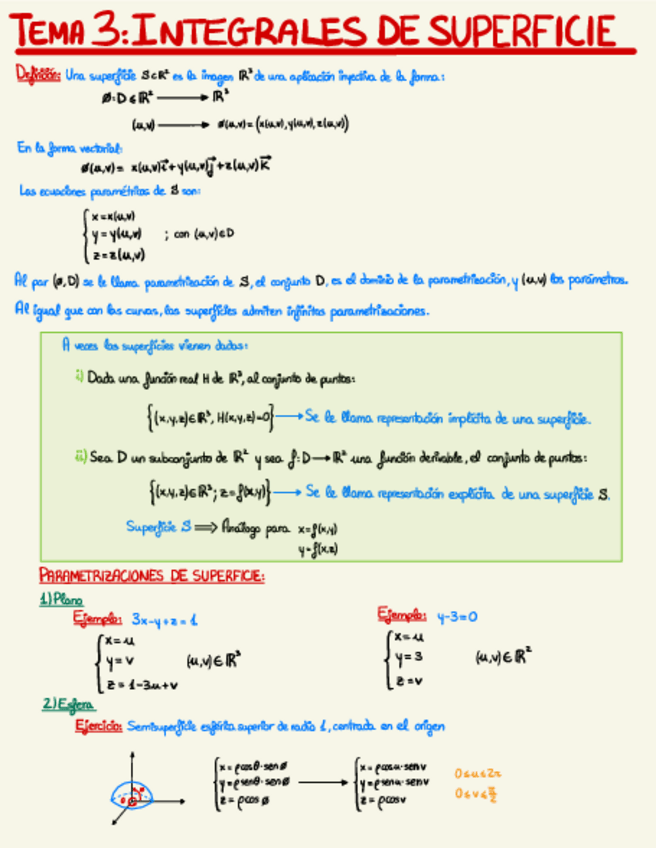 TEMA 3: INTEGRALES DE SUPERFICIE
Definición: Una superficie S⊂R² es la imagen R³ de una aplicación inyectiva de la forma:
Ø: D∈R² ⟶ R³
(u,v) ⟶ Ø(u,v) = (x(u,v), y(u,v), z(u,v))
En la forma vectorial:
Ø(u,v) = x(u,v)i⃗ + y(u,v)j⃗ + z(u,v)k⃗
Las ecuaciones paramétricas de S son:
x = x(u,v)
y = y(u,v) ; con (u,v)∈D
z = z(u,v)
Al par (Ø, D) se le llama parametrización de S, el conjunto D, es el dominio de la parametrización, y (u,v) los parámetros.
Al igual que con las curvas, las superficies admiten infinitas parametrizaciones.
A veces las superficies vienen dadas:
i) Dada una función real H de R³, al conjunto de puntos:
{(x,y,z)∈R³, H(x,y,z)=0} ⟶ Se le llama representación implícita de una superficie.
ii) Sea D un subconjunto de R² y sea f: D⟶R² una función derivable, el conjunto de puntos:
{(x,y,z)∈R³; z=f(x,y)} ⟶ Se le llama representación explícita de una superficie S.
Superficie S ⟹ Análogo para x=f(x,y)
y=f(x,z)
PARAMETRIZACIONES DE SUPERFICIE:
1) Plano
Ejemplo: 3x-y+z=1
x=u
y=v (u,v)∈R³
z=1-3u+v
Ejemplo: y-3=0
x=u
y=3 (u,v)∈R²
z=v
2) Esfera
Ejercicio: Semisuperficie esférica superior de radio 1, centrada en el origen
x=ρcosθ·senØ
y=ρsenθ·senØ
z=ρcosØ
⟶
x=ρcosu·senv
y=ρsenu·senv
z=ρcosv
0≤u≤2π
0≤v≤π/2